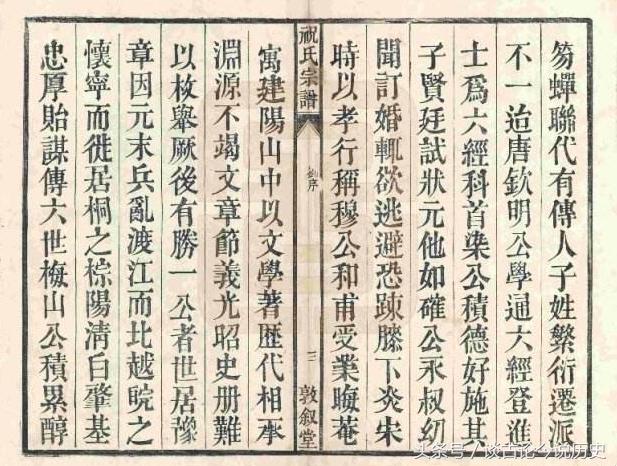 笏蟬聯代有傳人子姓繁衍遷派
不一迨唐欽明公學通六經登進
士爲六經科首染公積德好施其
子賢廷試狀元他如確公永叔幼
聞訂婚輒欲逃避恐踈膝下炎宋
時以孝行稱穆公和甫受業晦菴
祝氏宗譜
序
三
敦叙堂
寓建陽山中以文學著歴代相承
淵源不竭文章節義光昭史册難
以枚舉厥後有勝一 公者世居豫
章因元末兵亂渡江而北越皖之
懷寧而徙居桐之棕陽淸白肇基
忠厚貽謀傳六世梅山公積累醇
头条号／谈古论今说历史